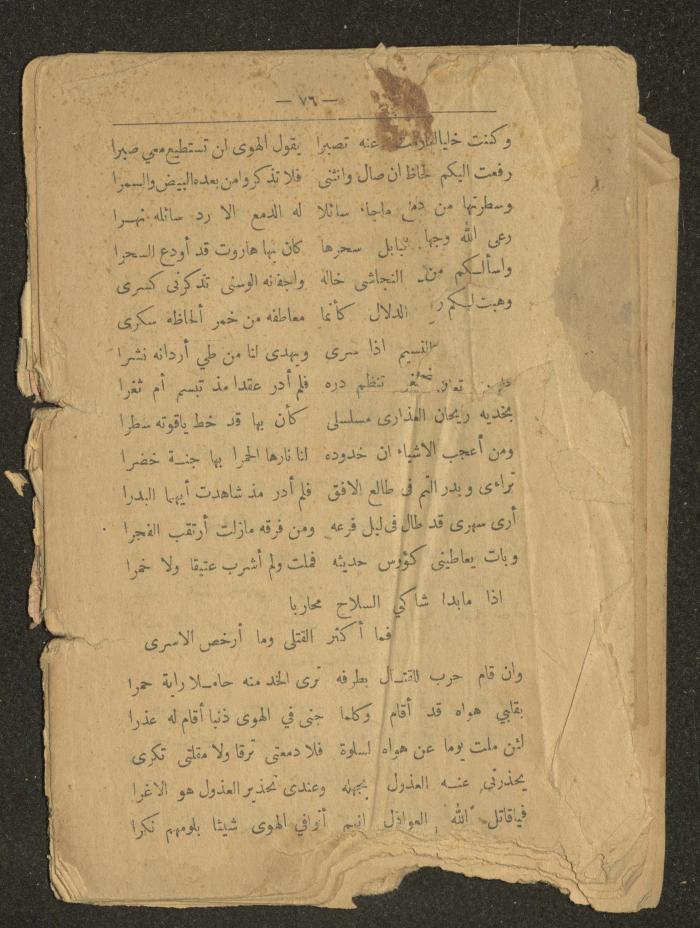 — ٧٦ —
وكنت خليا عنه تصبرا يقول الهوى ان تستطيع معي صبرا
رفعت اليكم لحاظ ان صال وانثنى فلا تذكروا من بعده البيض والسمرا
وسطرتها من دمع ماجاء سائلا له الدمع الا رد سائله نهرا
رعى الله وجها ببابل سحرها كان بها هاروت قد أودع السحرا
واسألكم من النجاشي خاله واجفانه الوسنى تذكرنى كسرى
وهبت لكم الدلال كأنما معاطفه من خمر ألحاظه سكرى
النسيم اذا سرى ويهدى لنا من طي أردانه نشرا
تنظم دره فلم أدر عقدا مذ تبسم أم ثغرا
بخديه ريحان العذارى مسلسلى كأن بها قد خط ياقوته سطرا
ومن أعجب الاشياء ان خدوده لنا نارها الحمرا بها جنة خضرا
تراءى وبدر التم فى طالع الافق فلم أدر مذ شاهدت أيهما البدرا
أرى سهرى قد طال فى ليل فرعه ومن فرقه مازلت أرتقب الفجرا
وبات يعاطينى كؤوس حديثه فملت ولم أشرب عتيقا ولا خمرا
اذا مابدا شاكي السلاح محاربا
فما أكثر القتلى وما أرخص الاسرى
وان قام حرب للقتال بطرفه ترى الخد منه حاملا راية حمرا
بقلبي هواه قد أقام وكلما جنى في الهوى ذنبا أقام له عذرا
لئن ملت يوما عن هواه لسلوة فلا دمعتى ترقا ولا مقلتى تكرى
يحذرنى عنه العذول بجهله وعندى تحذير العذول هو الاغرا
فياقاتل الله العواذل انهم أتوا في الهوى شيئا بلومهم نكرا